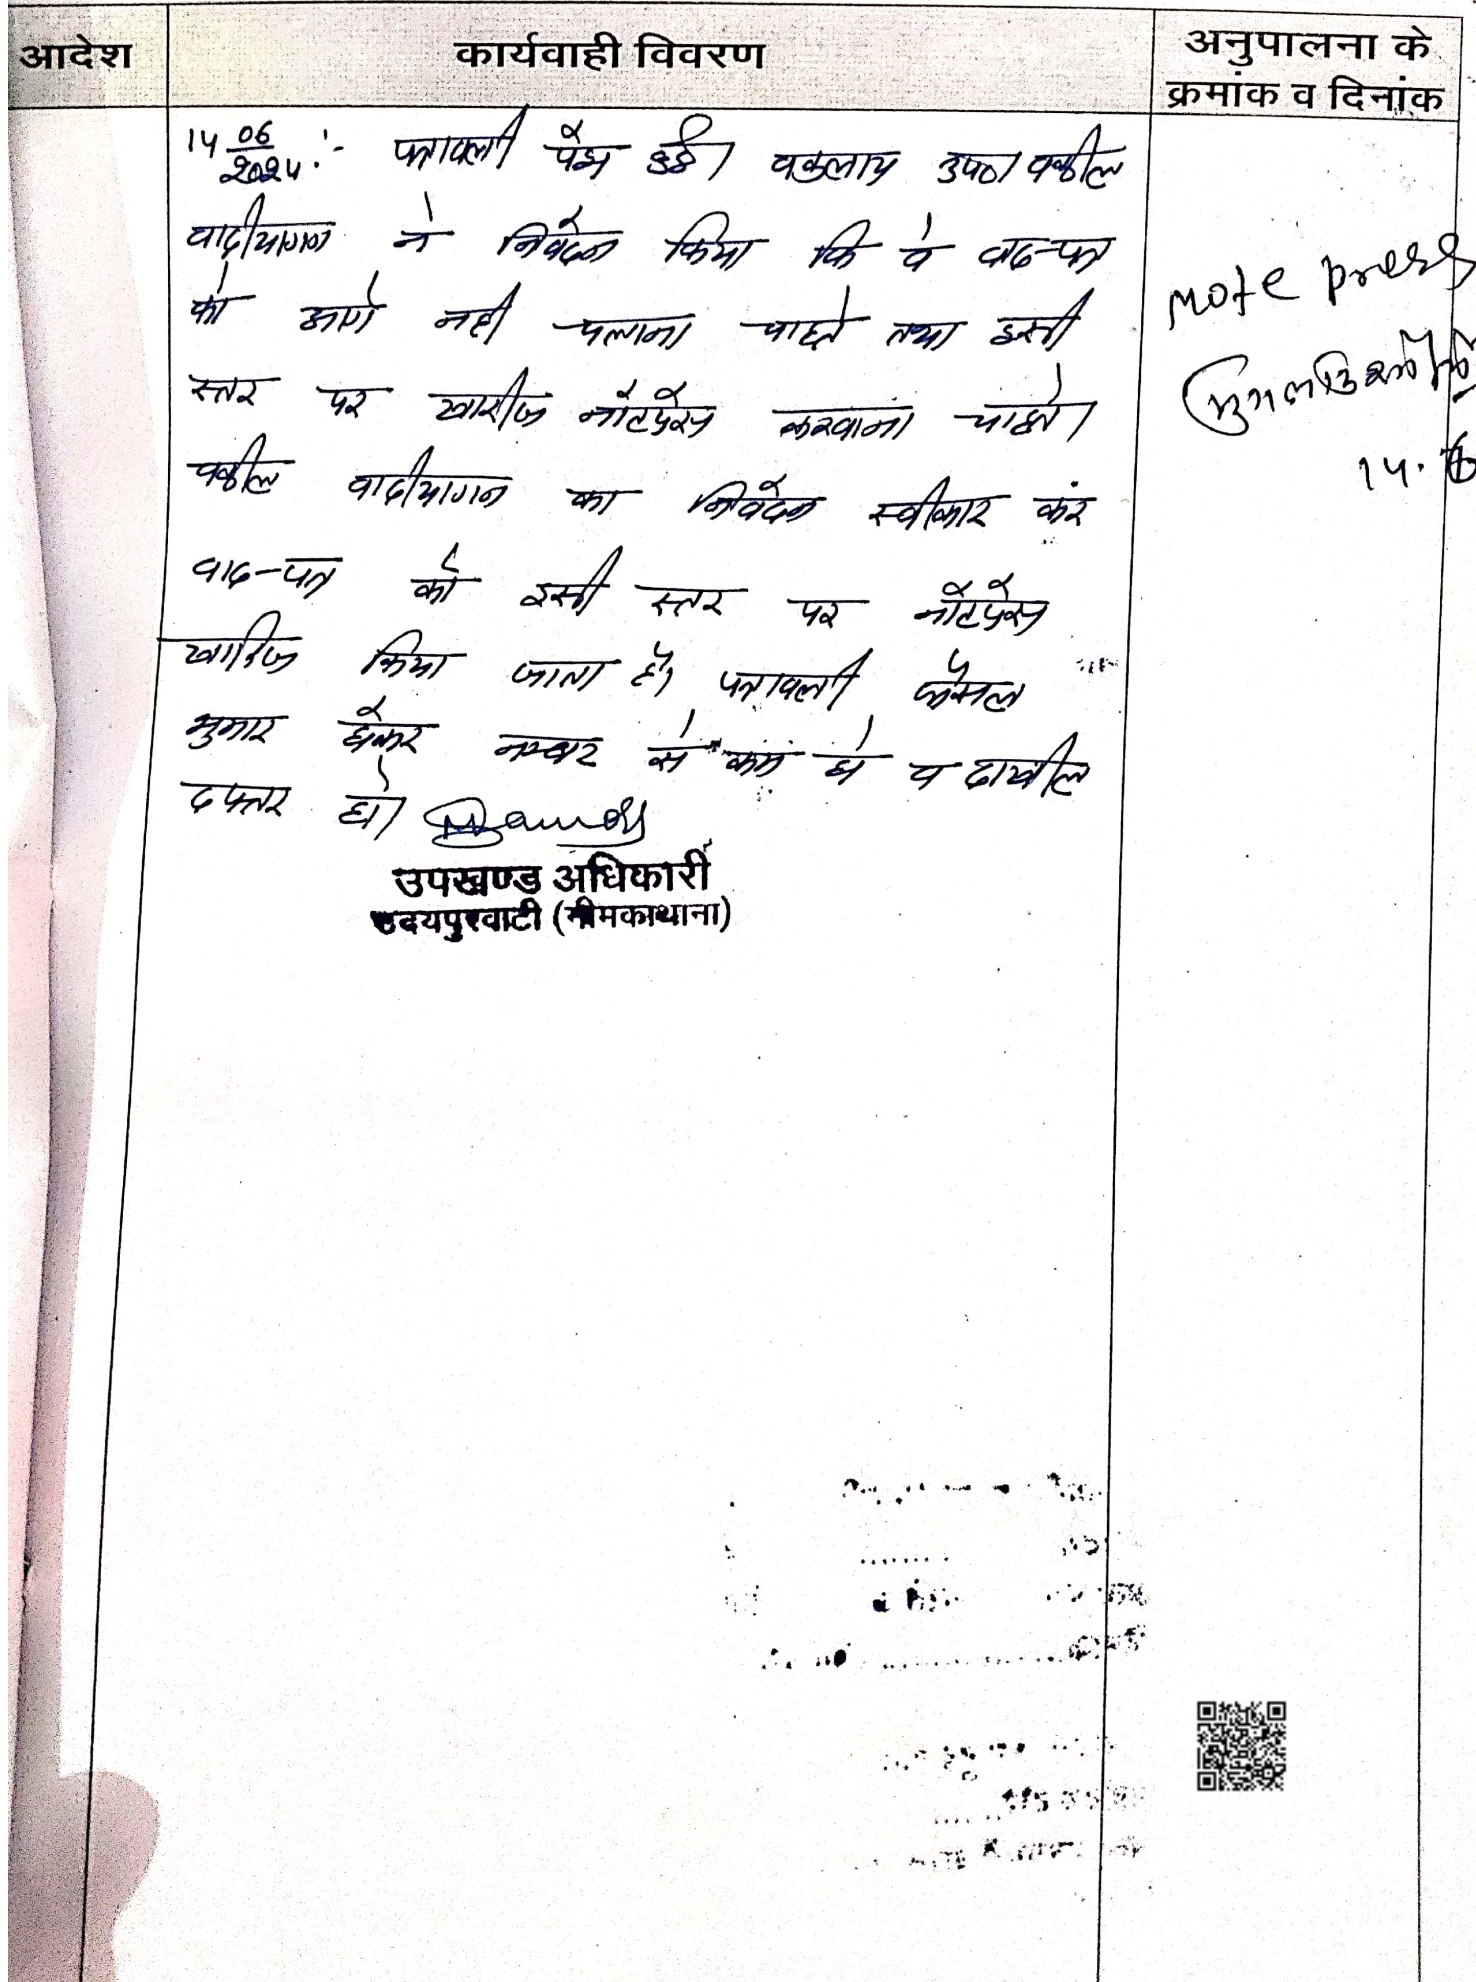 आदेश
कार्यवाही विवरण
अनुपालना के
क्रमांक व दिनांक
14 06/2024 :- पत्रावली पेश हुई। वकलाय उप0। वकील
वादीयागण ने निवेदन किया कि वे वाद-पत्र
को आगे नही चलाना चाहते तथा इसी
स्तर पर खारीज नॉटप्रेस करवाना चाहते।
वकील वादीयागन का निवेदन स्वीकार कर
वाद-पत्र को इसी स्तर पर नॉटप्रेस
खारिज किया जाता है। पत्रावली फैसल
सुमार होकर नम्बर से कम हो व दाखील
दफ्तर हो।
उपखण्ड अधिकारी
उदयपुरवाटी (नीमकाथाना)
note press
14.6